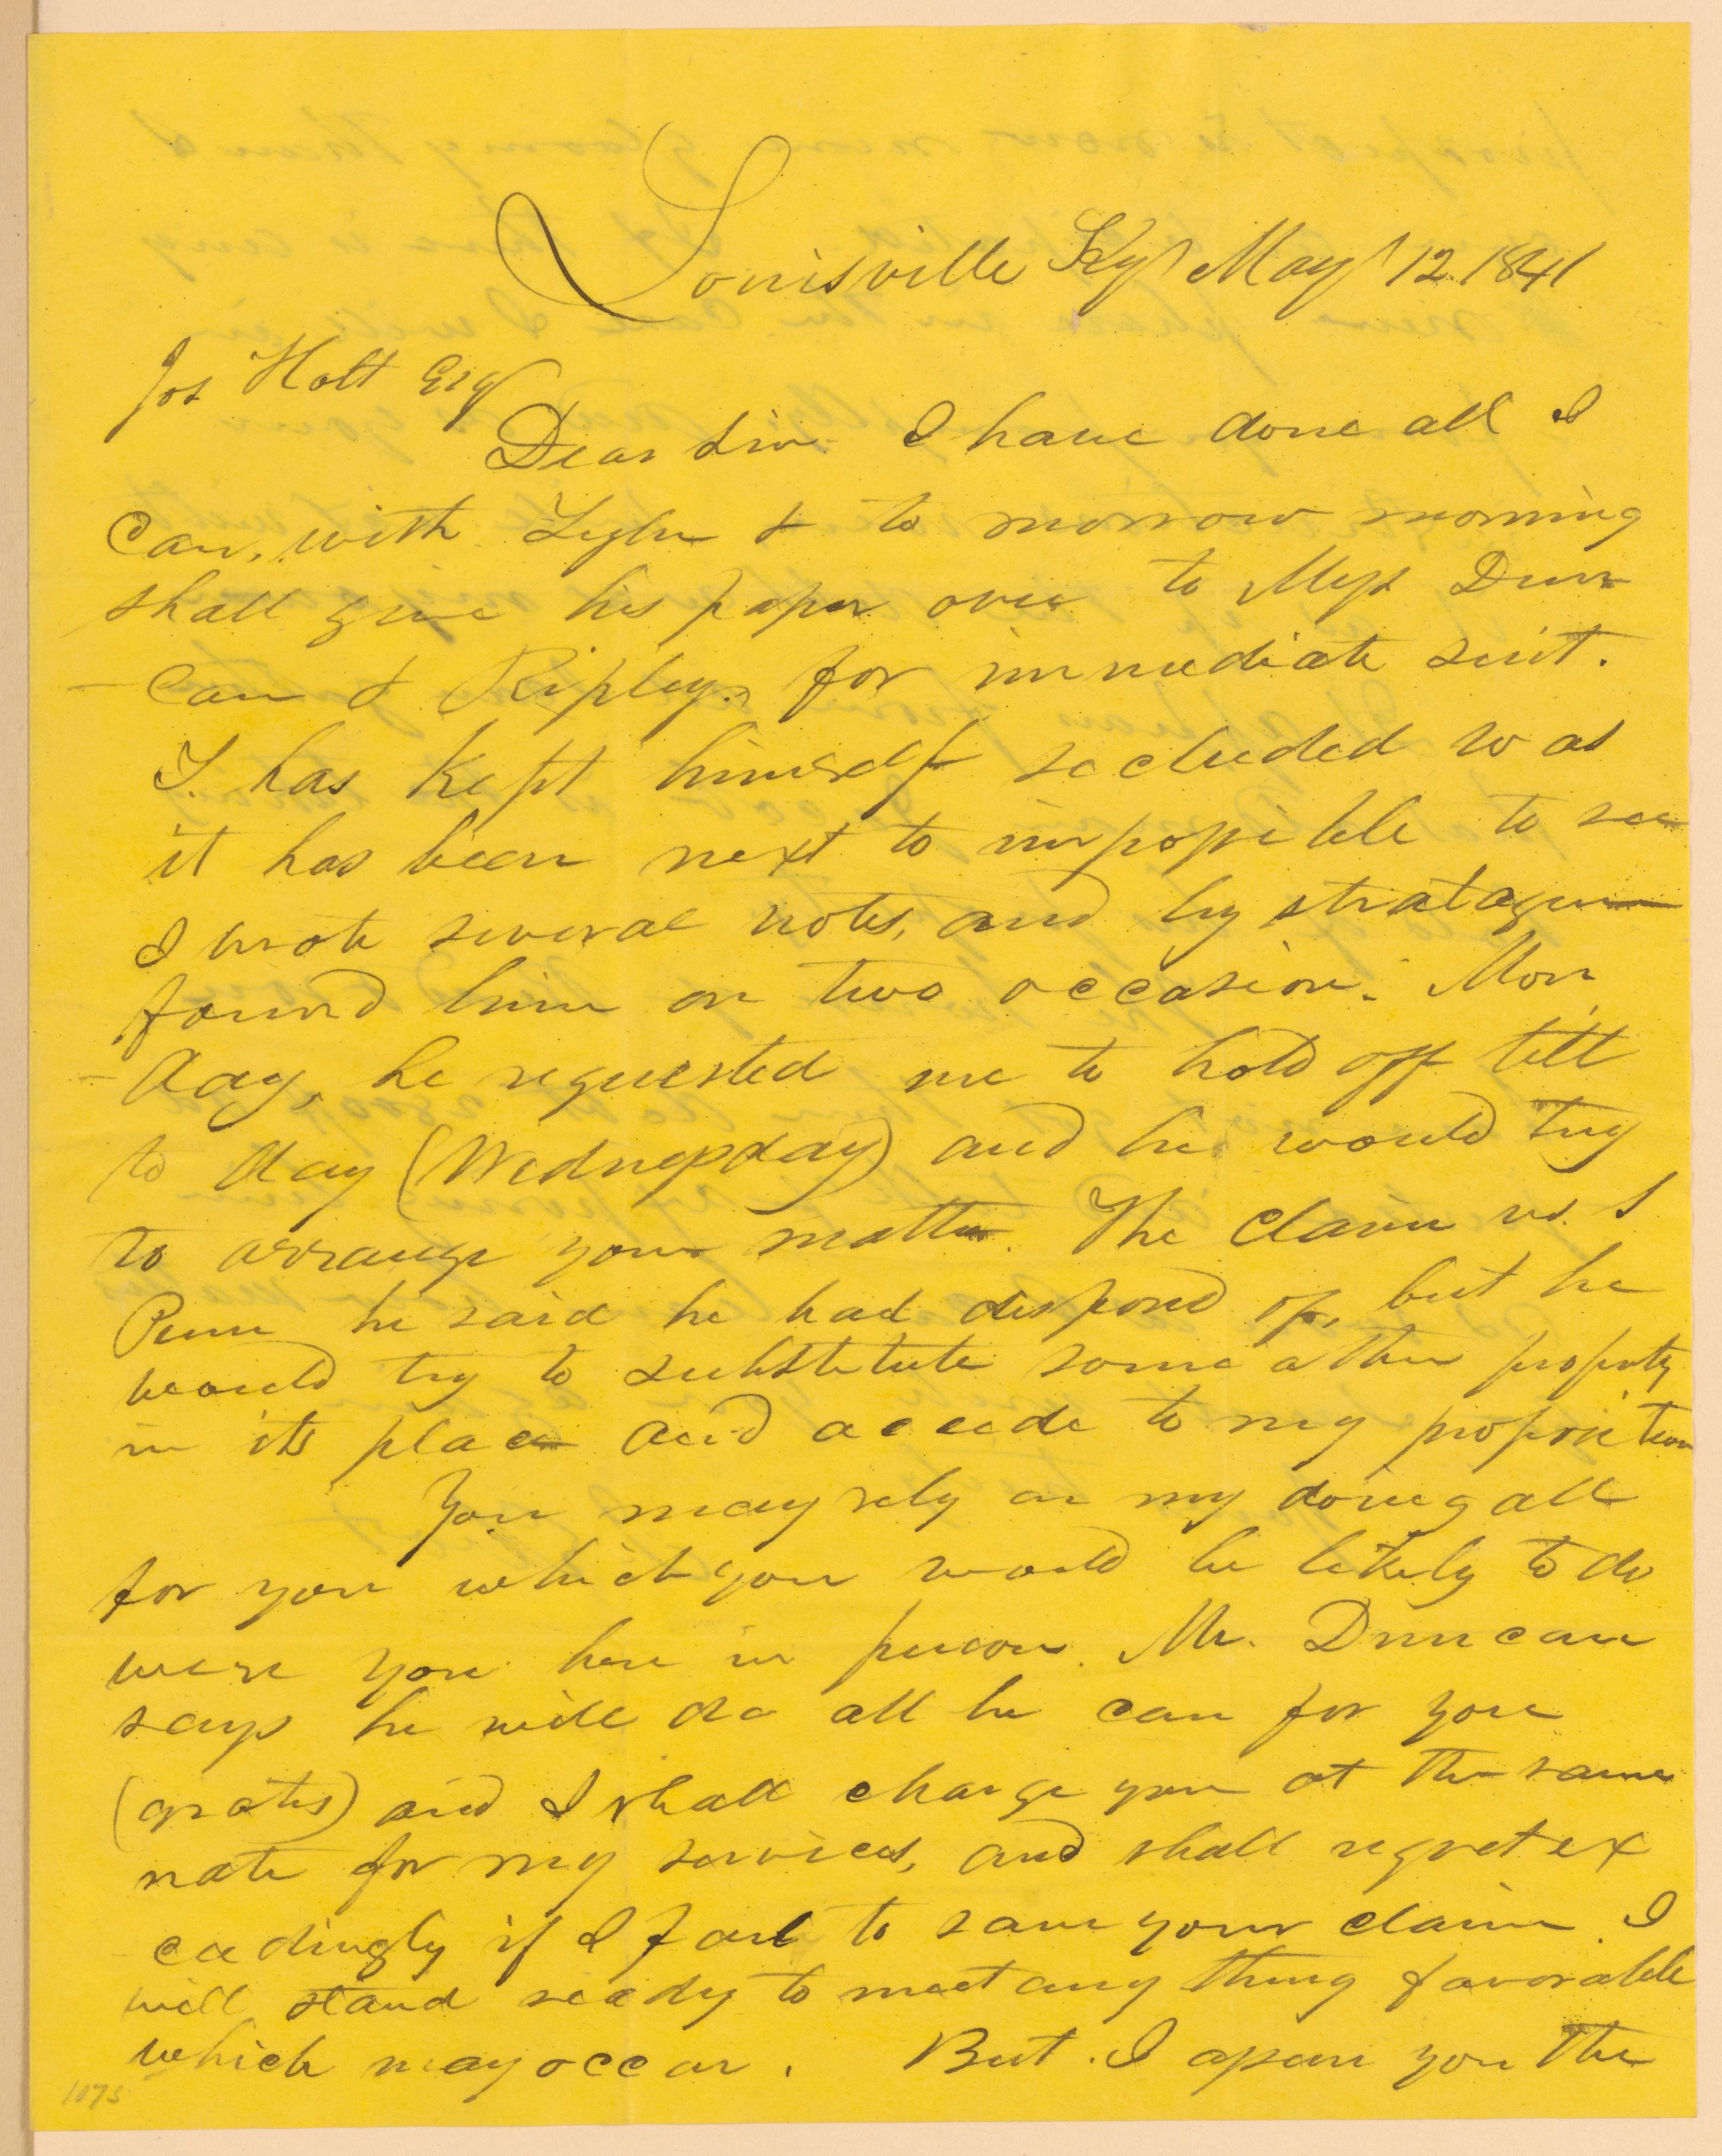 Louisville Ky May 12. 1841
Jos Holt Esq
Dear Sir. I have done all I
can, with Tyler & to morrow morning
shall give his paper over to Mess Dun
-can & Ripley, for immediate suit.
T. has kept himself secluded so as
it has been next to impossible to see
I wrote several notes, and by stratagem
found him on two occasion. Mon
-day, he requested me to hold off till
to day (Wednesday) and he would try
to arrange your matter. The claim vs. S
Penn he said he had disposd of, but he
would try to substitute some other property
in its place and accede to my proposition
You may rely on my doing all
for you which you would be likely to do
were you here in person. Mr. Duncan
says he will do all he can for you
(gratis) and I shall charge you at the same
rate for my services, and shall regret ex
ceedingly if I fail to save your claim. I
will stand ready to meet any thing favorable
which may occur. But. I assure you the
1073